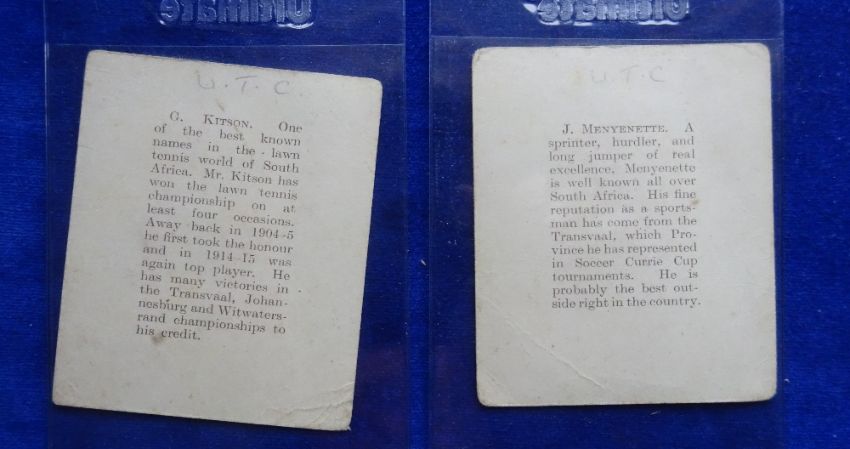 Ultimate
U. T. C.
G. KITSON. One
of the best known
names in the lawn
tennis world of South
Africa. Mr. Kitson has
won the lawn tennis
championship on at
least four occasions.
Away back in 1904-5
he first took the honour
and in 1914-15 was
again top player. He
has many victories in
the Transvaal, Johan-
nesburg and Witwaters-
rand championships to
his credit.
Ultimate
U. T. C
J. MENYENETTE. A
sprinter, hurdler, and
long jumper of real
excellence, Menyenette
is well known all over
South Africa. His fine
reputation as a sports-
man has come from the
Transvaal, which Pro-
vince he has represented
in Soccer Currie Cup
tournaments. He is
probably the best out-
side right in the country.